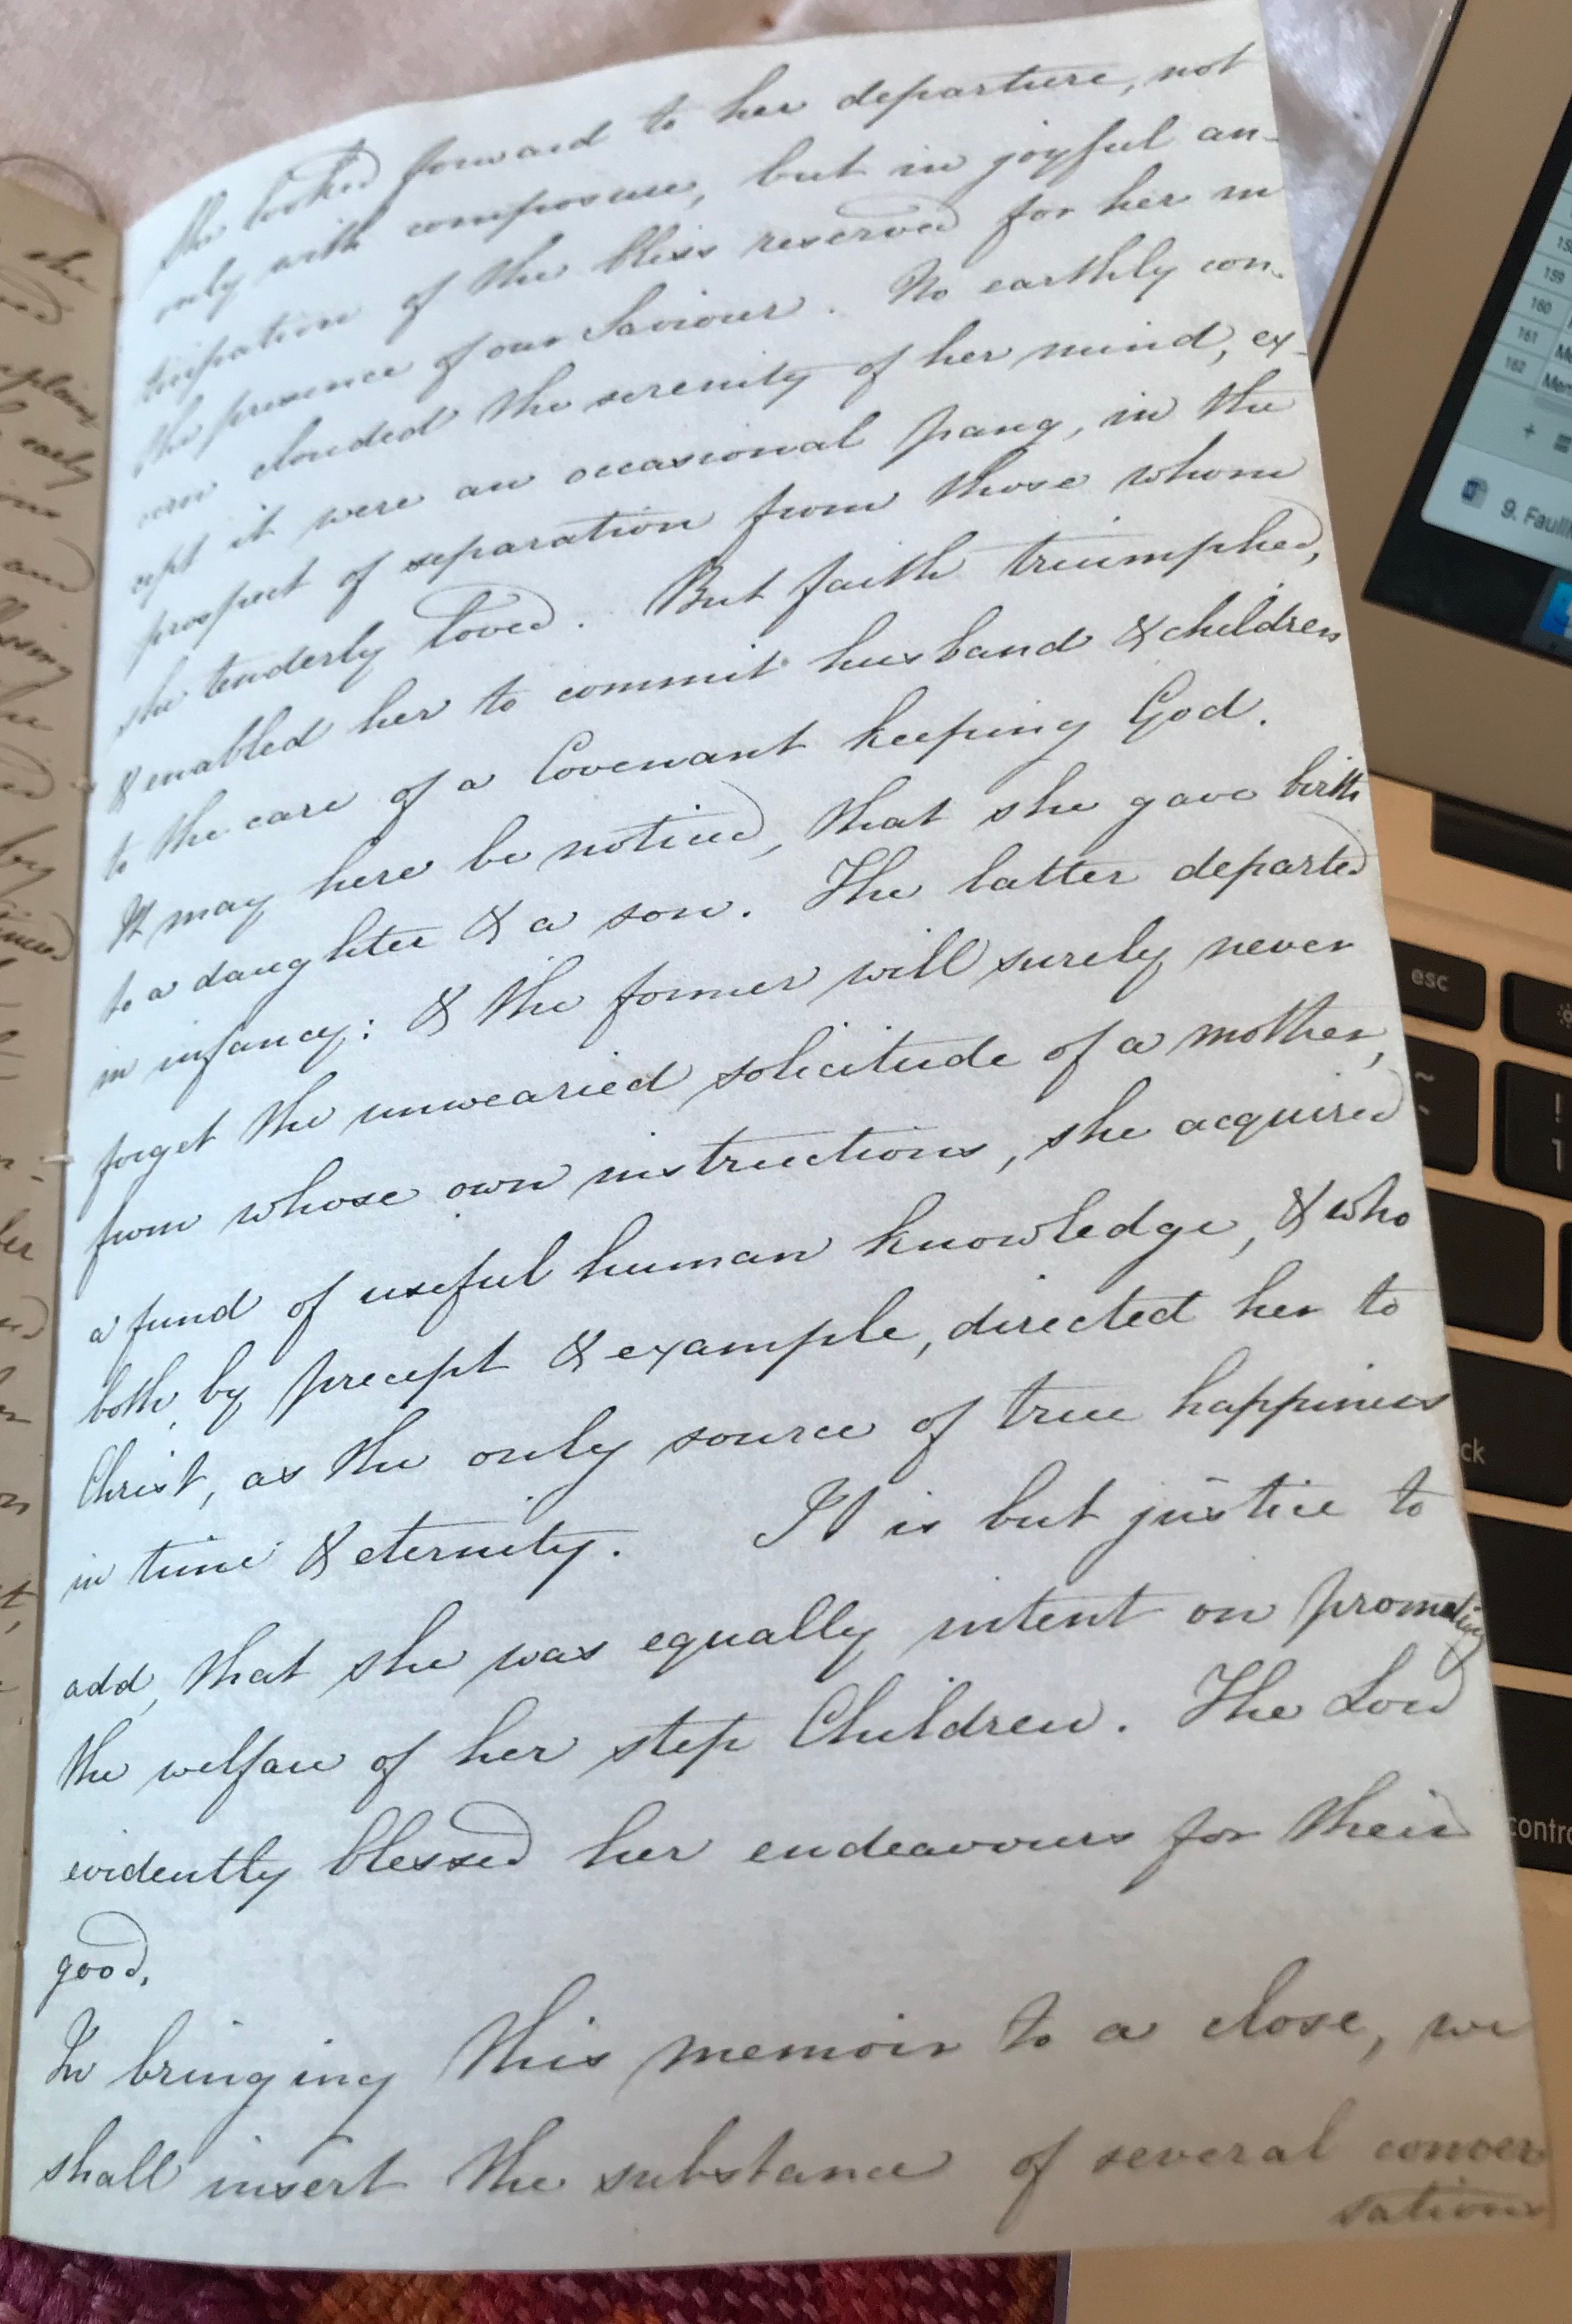 she looked forward to her departure, not
only with composure, but in joyful an-
ticipation of the bliss reserved for her in
the presence of our Saviour. No earthly con-
cern clouded the serenity of her mind, ex-
cept it were an occasional pang, in the
prospect of separation from those whom
she tenderly loved. But faith triumphed,
& enabled her to commit husband & children
to the care of a Covenant keeping God.
It may here be noticed, that she gave birth
to a daughter & a son. The latter departed
in infancy: & the former will surely never
forget the unwearied solicitude of a mother,
from whose own instructions, she acquired
a fund of useful human knowledge, & who
both by precept & example, directed her to
Christ, as the only source of true happiness
in time & eternity. It is but justice to
add, that she was equally intent on promoting
the welfare of her step Children. The Lord
evidently blessed her endeavours for their
good.
In bringing this memoir to a close, we
shall insert the substance of several conver
sations
she
early
and
by
159
160
161
162
+
9. Faull
esc
~
!
1
ck
contro